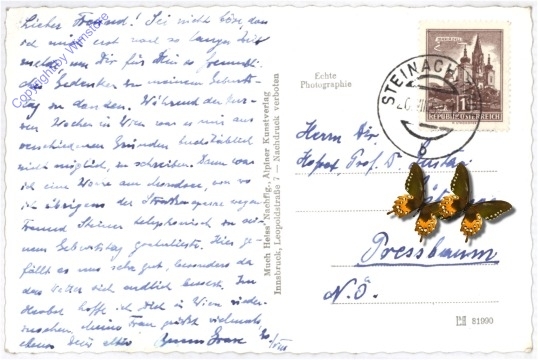 Lieber Freund! Sei nicht böse, dass
ich mich erst nach so langer Zeit
melde, um Dir für Dein so freundli-
ches Gedenken zu meinem Geburts-
tag zu danken. Während der kur-
zen Wochen in Wien war es mir aus
verschiedenen Gründen buchstäblich
nicht möglich, zu schreiben. Dann war
ich eine Woche am Mondsee, von wo
ich übrigens der
Freund Steiner telephonisch zu sei-
nem Geburtstag gratulierte. Hier ge-
fällt es uns sehr gut, besonders da
das Wetter sich endlich bessert. Im
Herbst hoffe ich Dich in Wien wieder-
zusehen. Meine Frau grüßt vielmals,
ebenso Dein alter
Copyright by Wimstore
Much Heiss' Nachflg., Alpiner Kunstverlag
Innsbruck, Leopoldstraße 7 — Nachdruck verboten
Echte
Photographie
MARIAZELL
S 1
REPUBLIK ÖSTERREICH
STEINACH
Herrn Dir.
Hofrat Prof. D. Gustav
Pressbaum
N.Ö.
81990